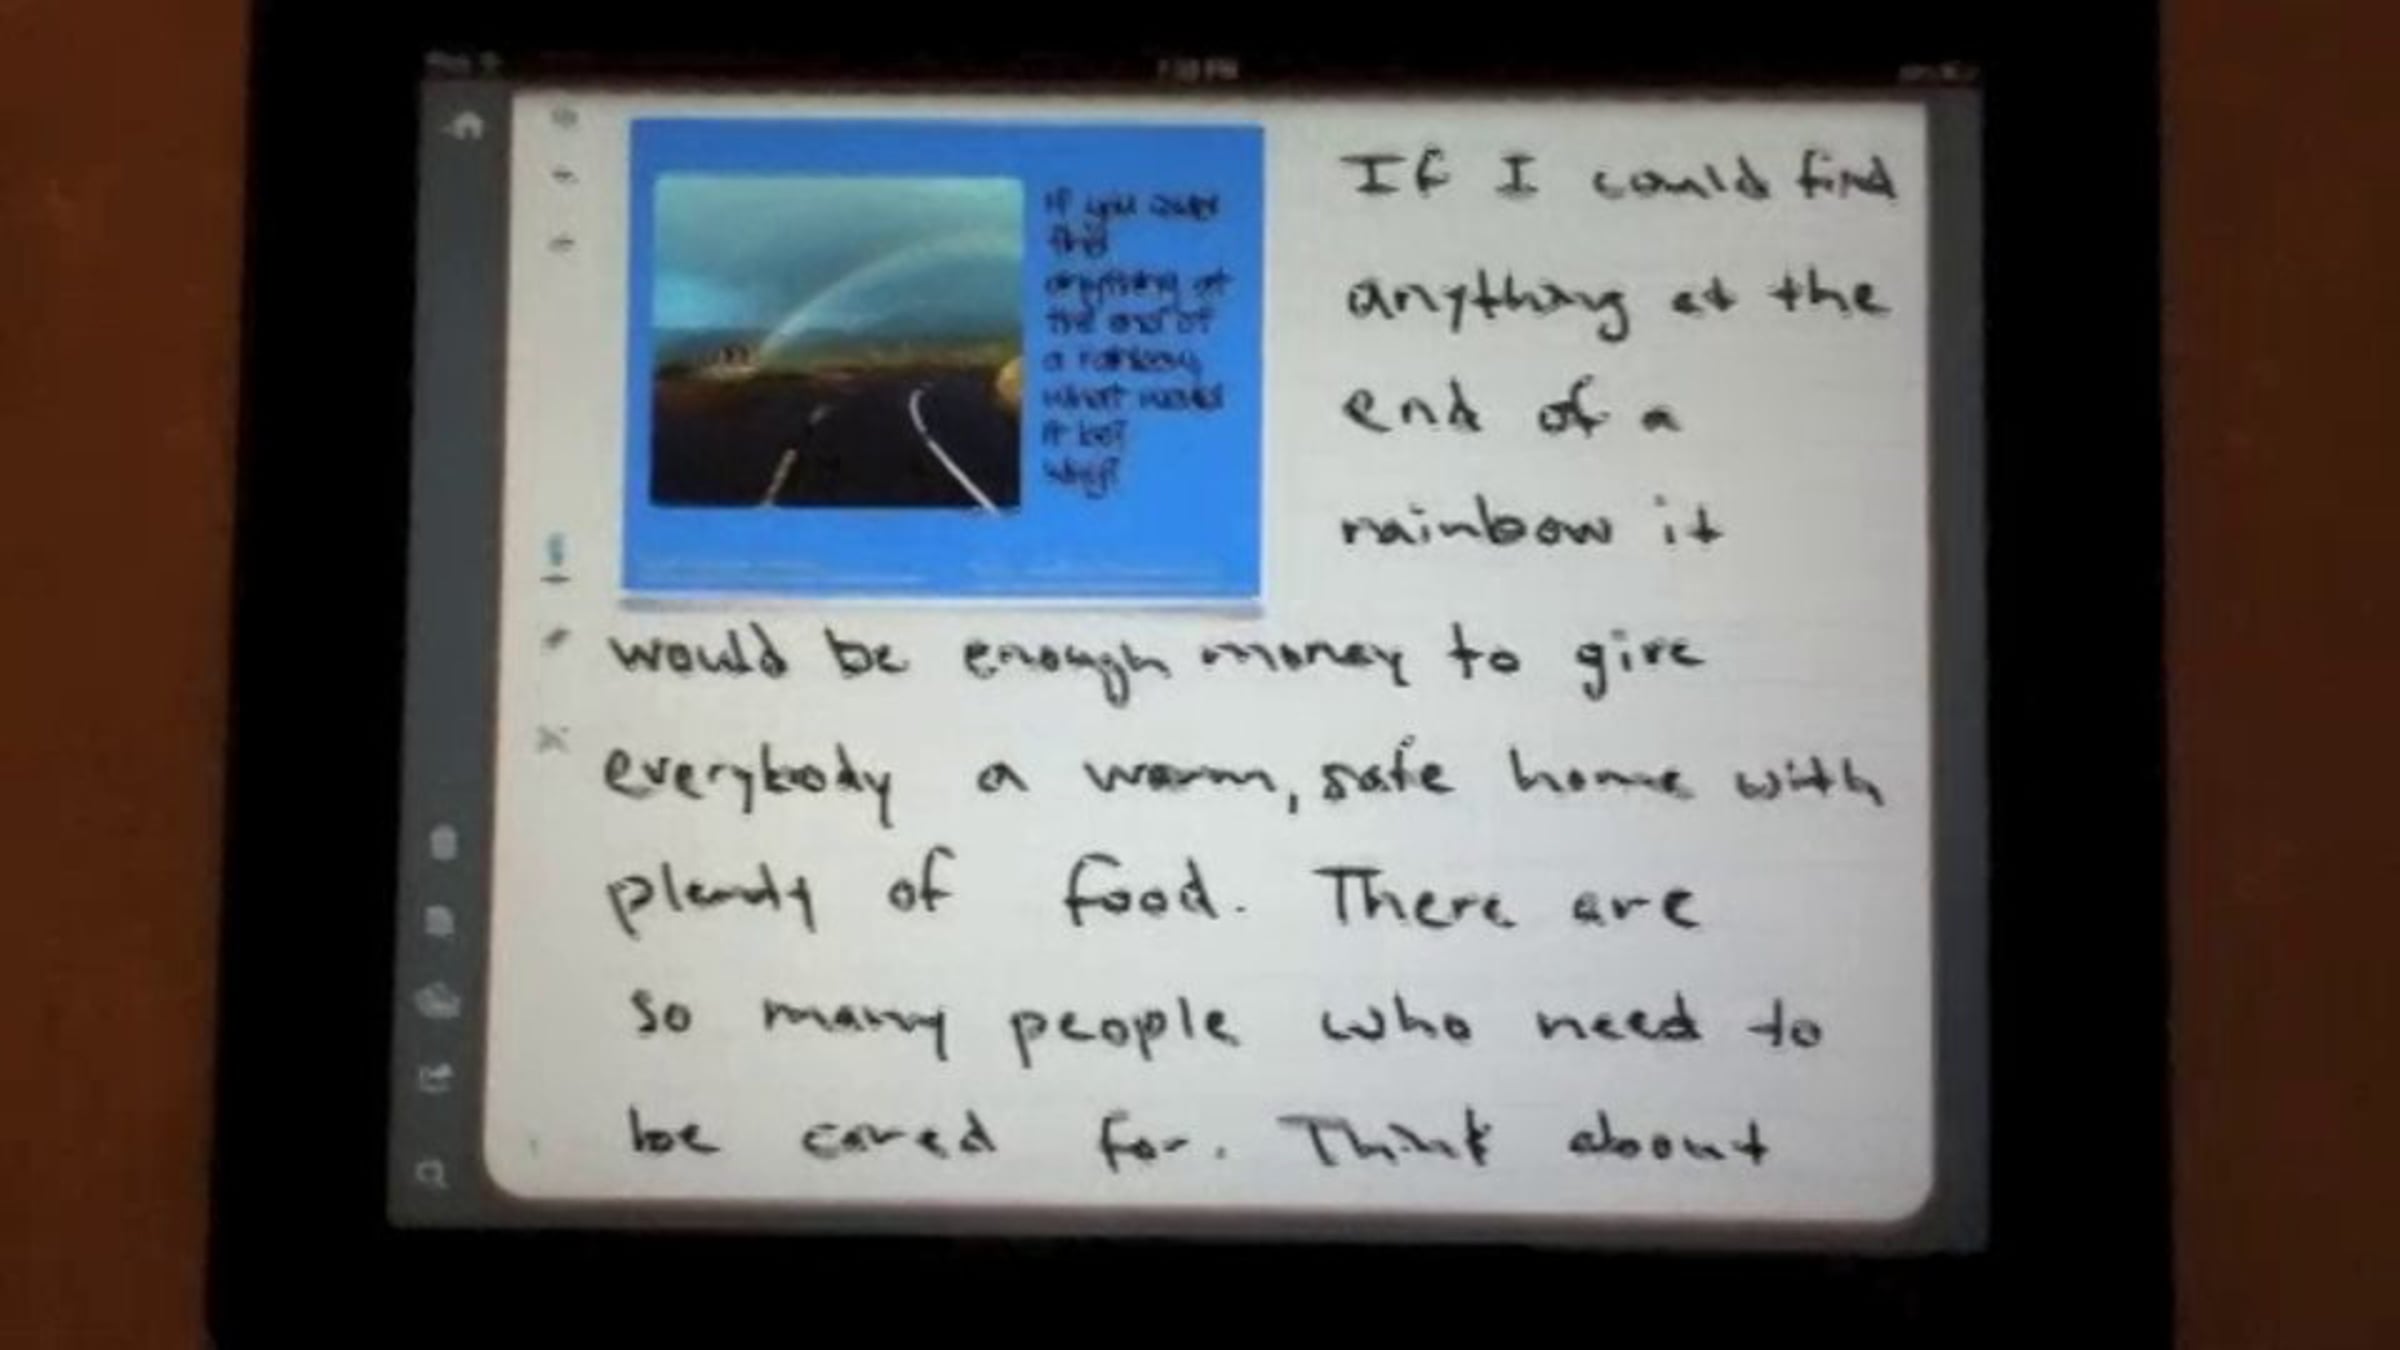 If you could
find
anything at
the end of
a rainbow,
what would
it be?
Why?
If I could find
anything at the
end of a
rainbow it
would be enough money to give
everybody a warm, safe home with
plenty of food. There are
so many people who need to
be cared for. Think about